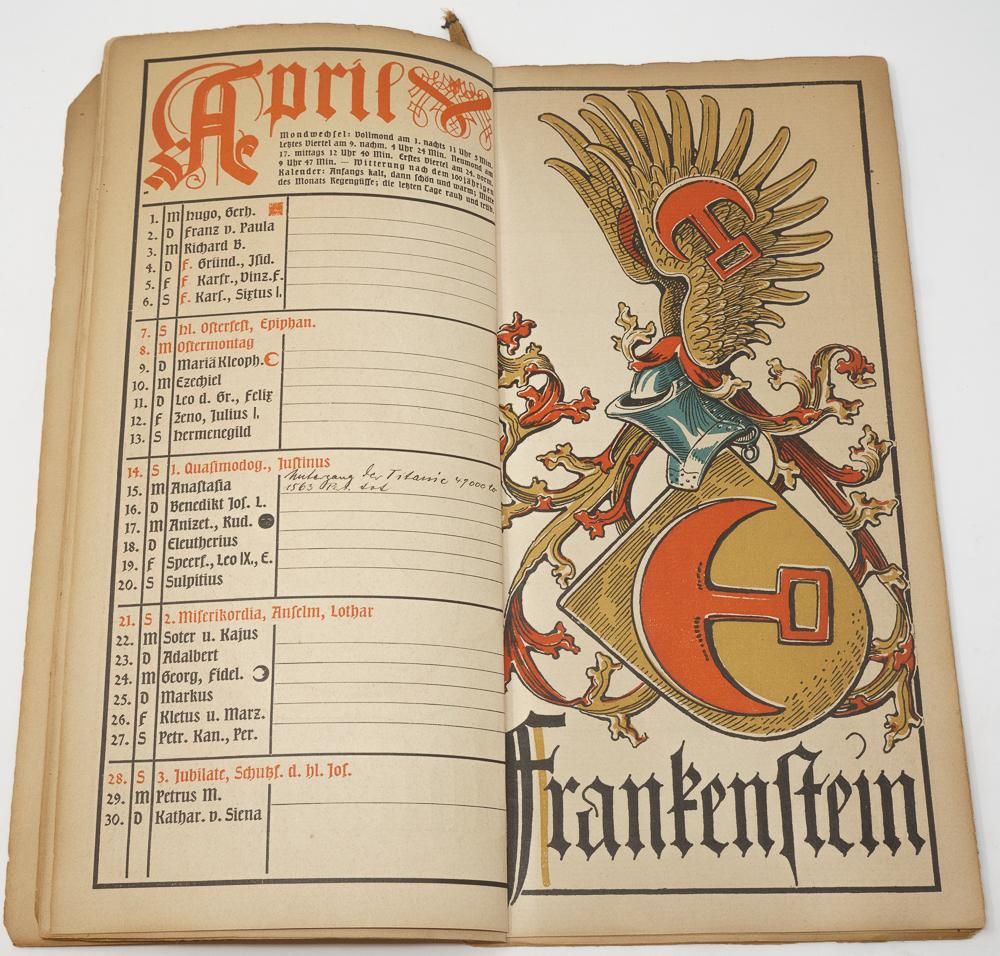 April
Mondwechsel: Vollmond am 1. nachts 11 Uhr 5 Min.
letztes Viertel am 9. nachm. 4 Uhr 24 Min. Neumond am
17. mittags 12 Uhr 40 Min. Erstes Viertel am 24. vorm.
9 Uhr 47 Min. — Witterung nach dem 100jährigen
Kalender: Anfangs kalt, dann schön und warm; Mitte
des Monats Regengüsse; die letzten Tage rauh und trüb.
1. M Hugo, Gerh.
2. D Franz v. Paula
3. M Richard B.
4. D F. Gründ., Isid.
5. F F. Karfr., Vinz. F.
6. S F. Kars., Sixtus I.
7. S Hl. Osterfest, Epiphan.
8. M Ostermontag
9. D Mariä Kleoph.
10. M Ezechiel
11. D Leo d. Gr., Felix
12. F Zeno, Julius I.
13. S Hermenegild
14. S 1. Quasimodog., Justinus
15. M Anastasia Untergang der Titanic 47000 to
16. D Benedikt Jos. L. 1563 tot
17. M Anizet., Rud.
18. D Eleutherius
19. F Speerf., Leo IX., E.
20. S Sulpitius
21. S 2. Miserikordia, Anselm, Lothar
22. M Soter u. Kajus
23. D Adalbert
24. M Georg, Fidel.
25. D Markus
26. F Kletus u. Marz.
27. S Petr. Kan., Per.
28. S 3. Jubilate, Schutzf. d. hl. Jos.
29. M Petrus M.
30. D Kathar. v. Siena
Frankenstein